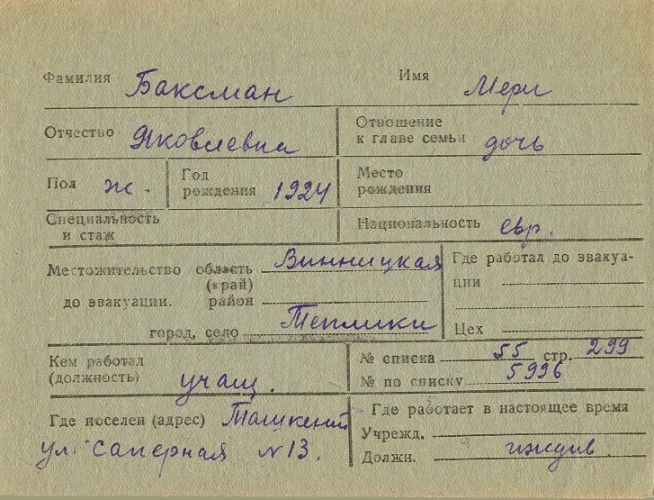 Фамилия Баксман Имя Мери
Отчество Яковлевна Отношение к главе семьи дочь
Пол ж. Год рождения 1924 Место рождения
Специальность и стаж Национальность евр.
Местожительство область (край) Винницкая Где работал до эвакуации
до эвакуации. район
город, село Теплики Цех
Кем работал (должность) учащ. № списка 55 стр. 299
№ по списку 5996
Где поселен (адрес) Ташкент Где работает в настоящее время
ул. Саперная № 13. Учрежд.
Должн. иждив.